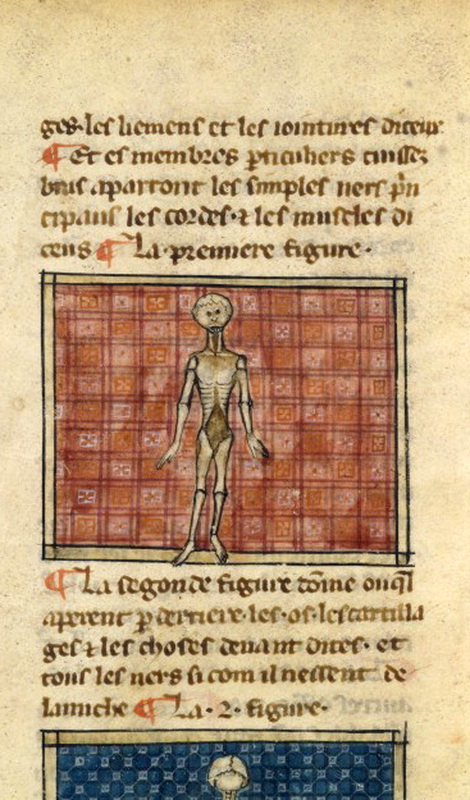 ges·les liemens et les iointures diceux·
¶ Et es membres pticuliers cuisses
bras aparront les simples ners prin
cipaus les cordes·⁊ les muscles di
ceus ¶ La·premiere figure·
¶ La segonde figure cōme on q̄l
aperent p derriere·les·os·les cartilla
ges ⁊ les choses deuant dites· et
tous les ners si com il nessent de
la nuche ¶ La·2·figure·